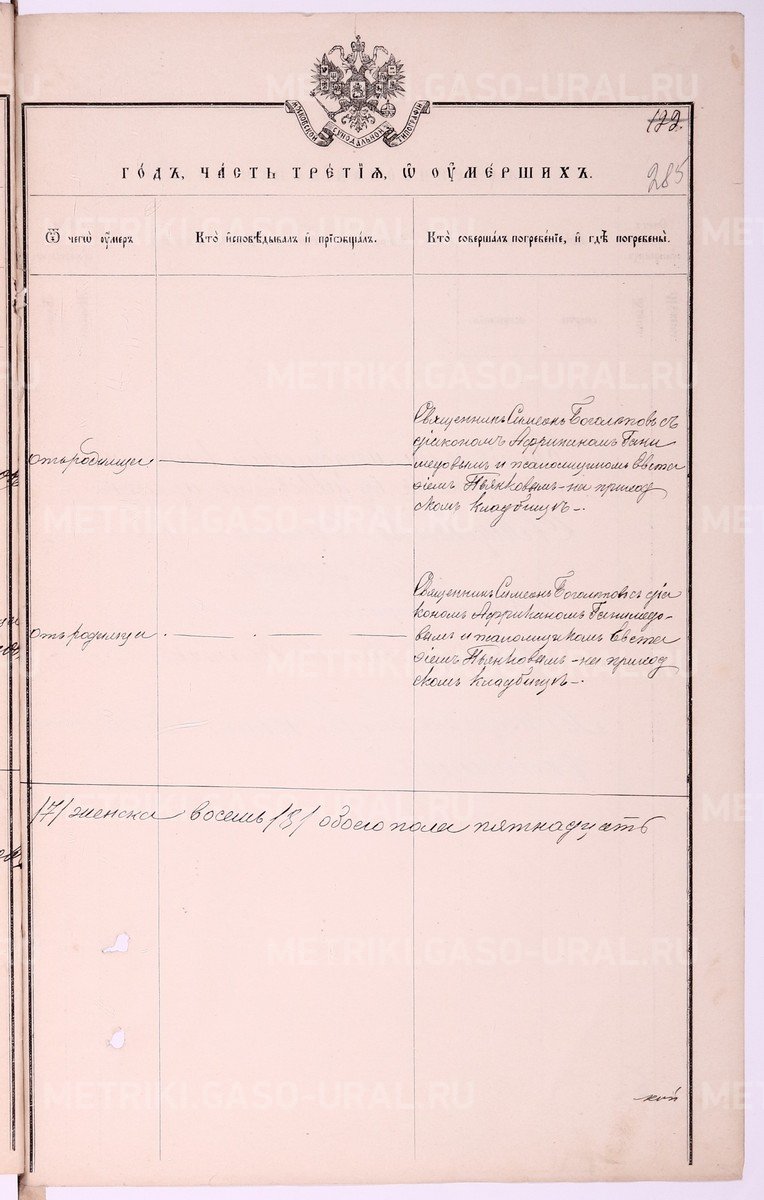 МОСКОВСКОЙ СѴНОДАЛЬНОЙ ТИПОГРАФІИ
122.
285
ГО́ДЪ, ЧА́СТЬ ТРЕ́ТІѦ, Ѡ ОУ҆МЕ́РШИХЪ.
Ѿ чегѡ̀ оу҆́меръ
Кто̀ и҆сповѣ́дывалъ и҆ прїѡбща́лъ.
Кто̀ соверша́лъ погребе́нїе, и҆ гдѣ̀ погребены̀.
отъ родимца
Священникъ Симеонъ Боголѣповъ съ
діакономъ Африканомъ Гани
медовымъ и псаломщикомъ Евста
фіемъ Пьянковымъ – на приход
скомъ кладбищѣ –.
отъ родимца
Священникъ Симеонъ Боголѣповъ съ діа
кономъ Африканомъ Ганимедо-
вымъ и псаломщикомъ Евста
фіемъ Пьянковымъ – на приход
скомъ кладбищѣ –.
/7/ женска восемь /8/ обоего пола пятнадцать
кой
METRIKI.GASO-URAL.RU